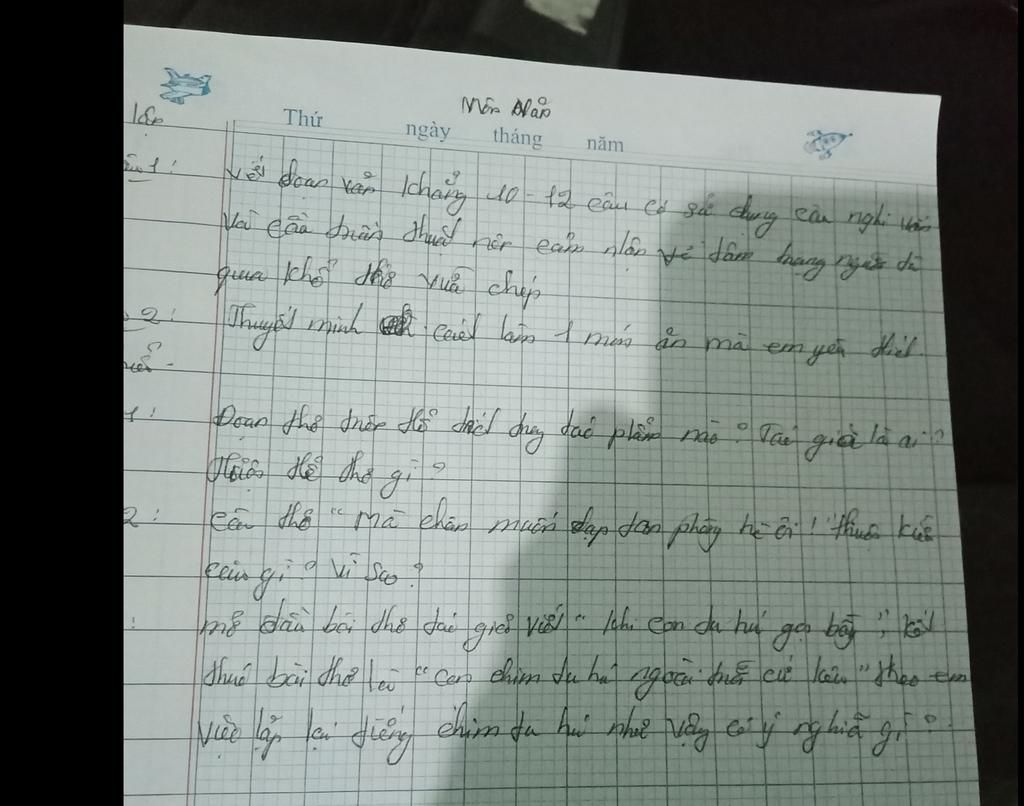 Môn Văn
Thứ ngày tháng năm
lập
1: Viết đoạn văn khoảng 10-12 câu có sử dụng câu nghi vấn
và câu trần thuật nêu cảm nhận về tâm trạng người
qua khổ thơ vừa chép
2: Thuyết minh cách làm 1 món ăn mà em yêu thích.
1: Đoạn thơ trên trích tác phẩm nào? Tác giả là ai?
thể thơ gì?
2: Câu thơ "mà chân muốn đạp tan phòng hè ôi!" thuộc kiểu
câu gì? Vì sao?
: mở đầu bài thơ tác giả viết "khi con tu hú gọi bầy", kết
thúc bài thơ là "con chim tu hú ngoài trời cứ kêu" theo em
việc lặp lại tiếng chim tu hú như vậy có ý nghĩa gì?